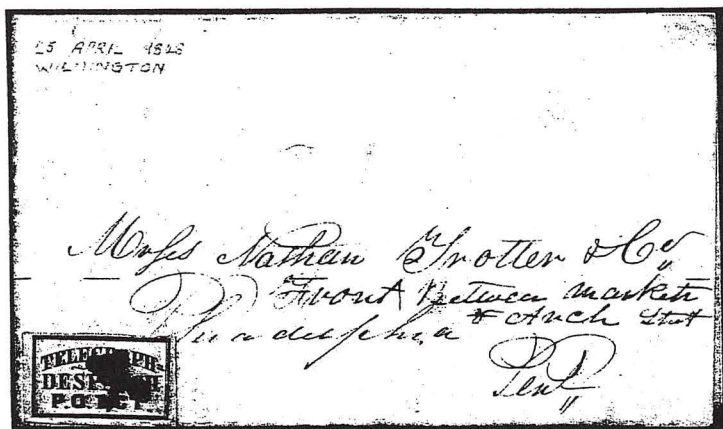 25 APRIL 1848
WILMINGTON
Messs Nathan Trotter & Co
Front Between Market
& Arch Street
Philadelphia
Penl
TELEGRAPH-
P.O.